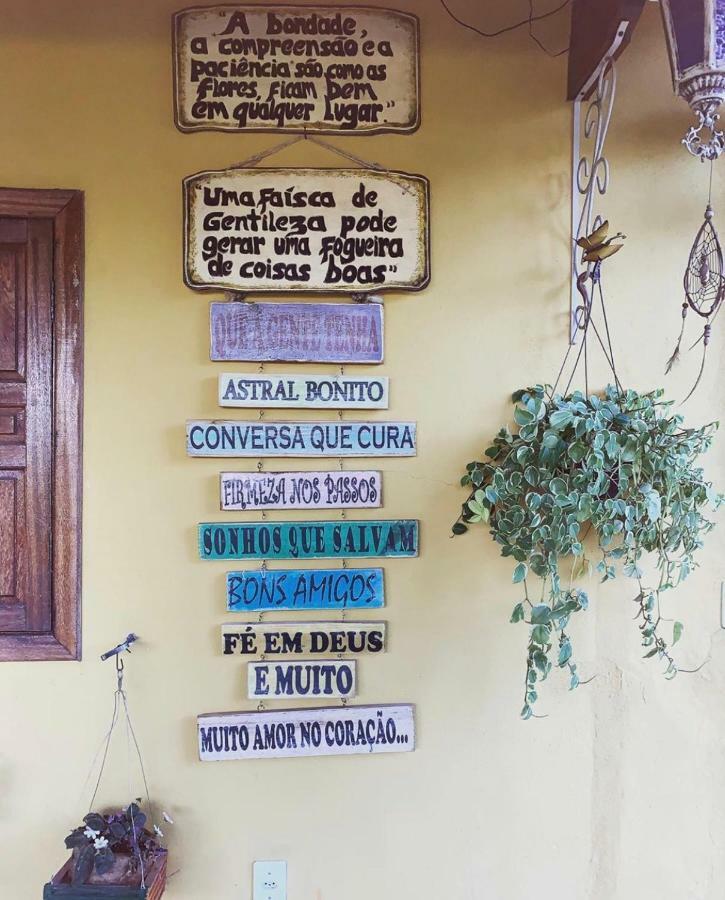 "A bondade,
a compreensão e a
paciência são como as
flores, ficam bem
em qualquer lugar."
"Uma faísca de
Gentileza pode
gerar uma fogueira
de coisas boas"
QUE A GENTE TENHA
ASTRAL BONITO
CONVERSA QUE CURA
FIRMEZA NOS PASSOS
SONHOS QUE SALVAM
BONS AMIGOS
FÉ EM DEUS
E MUITO
MUITO AMOR NO CORAÇÃO...